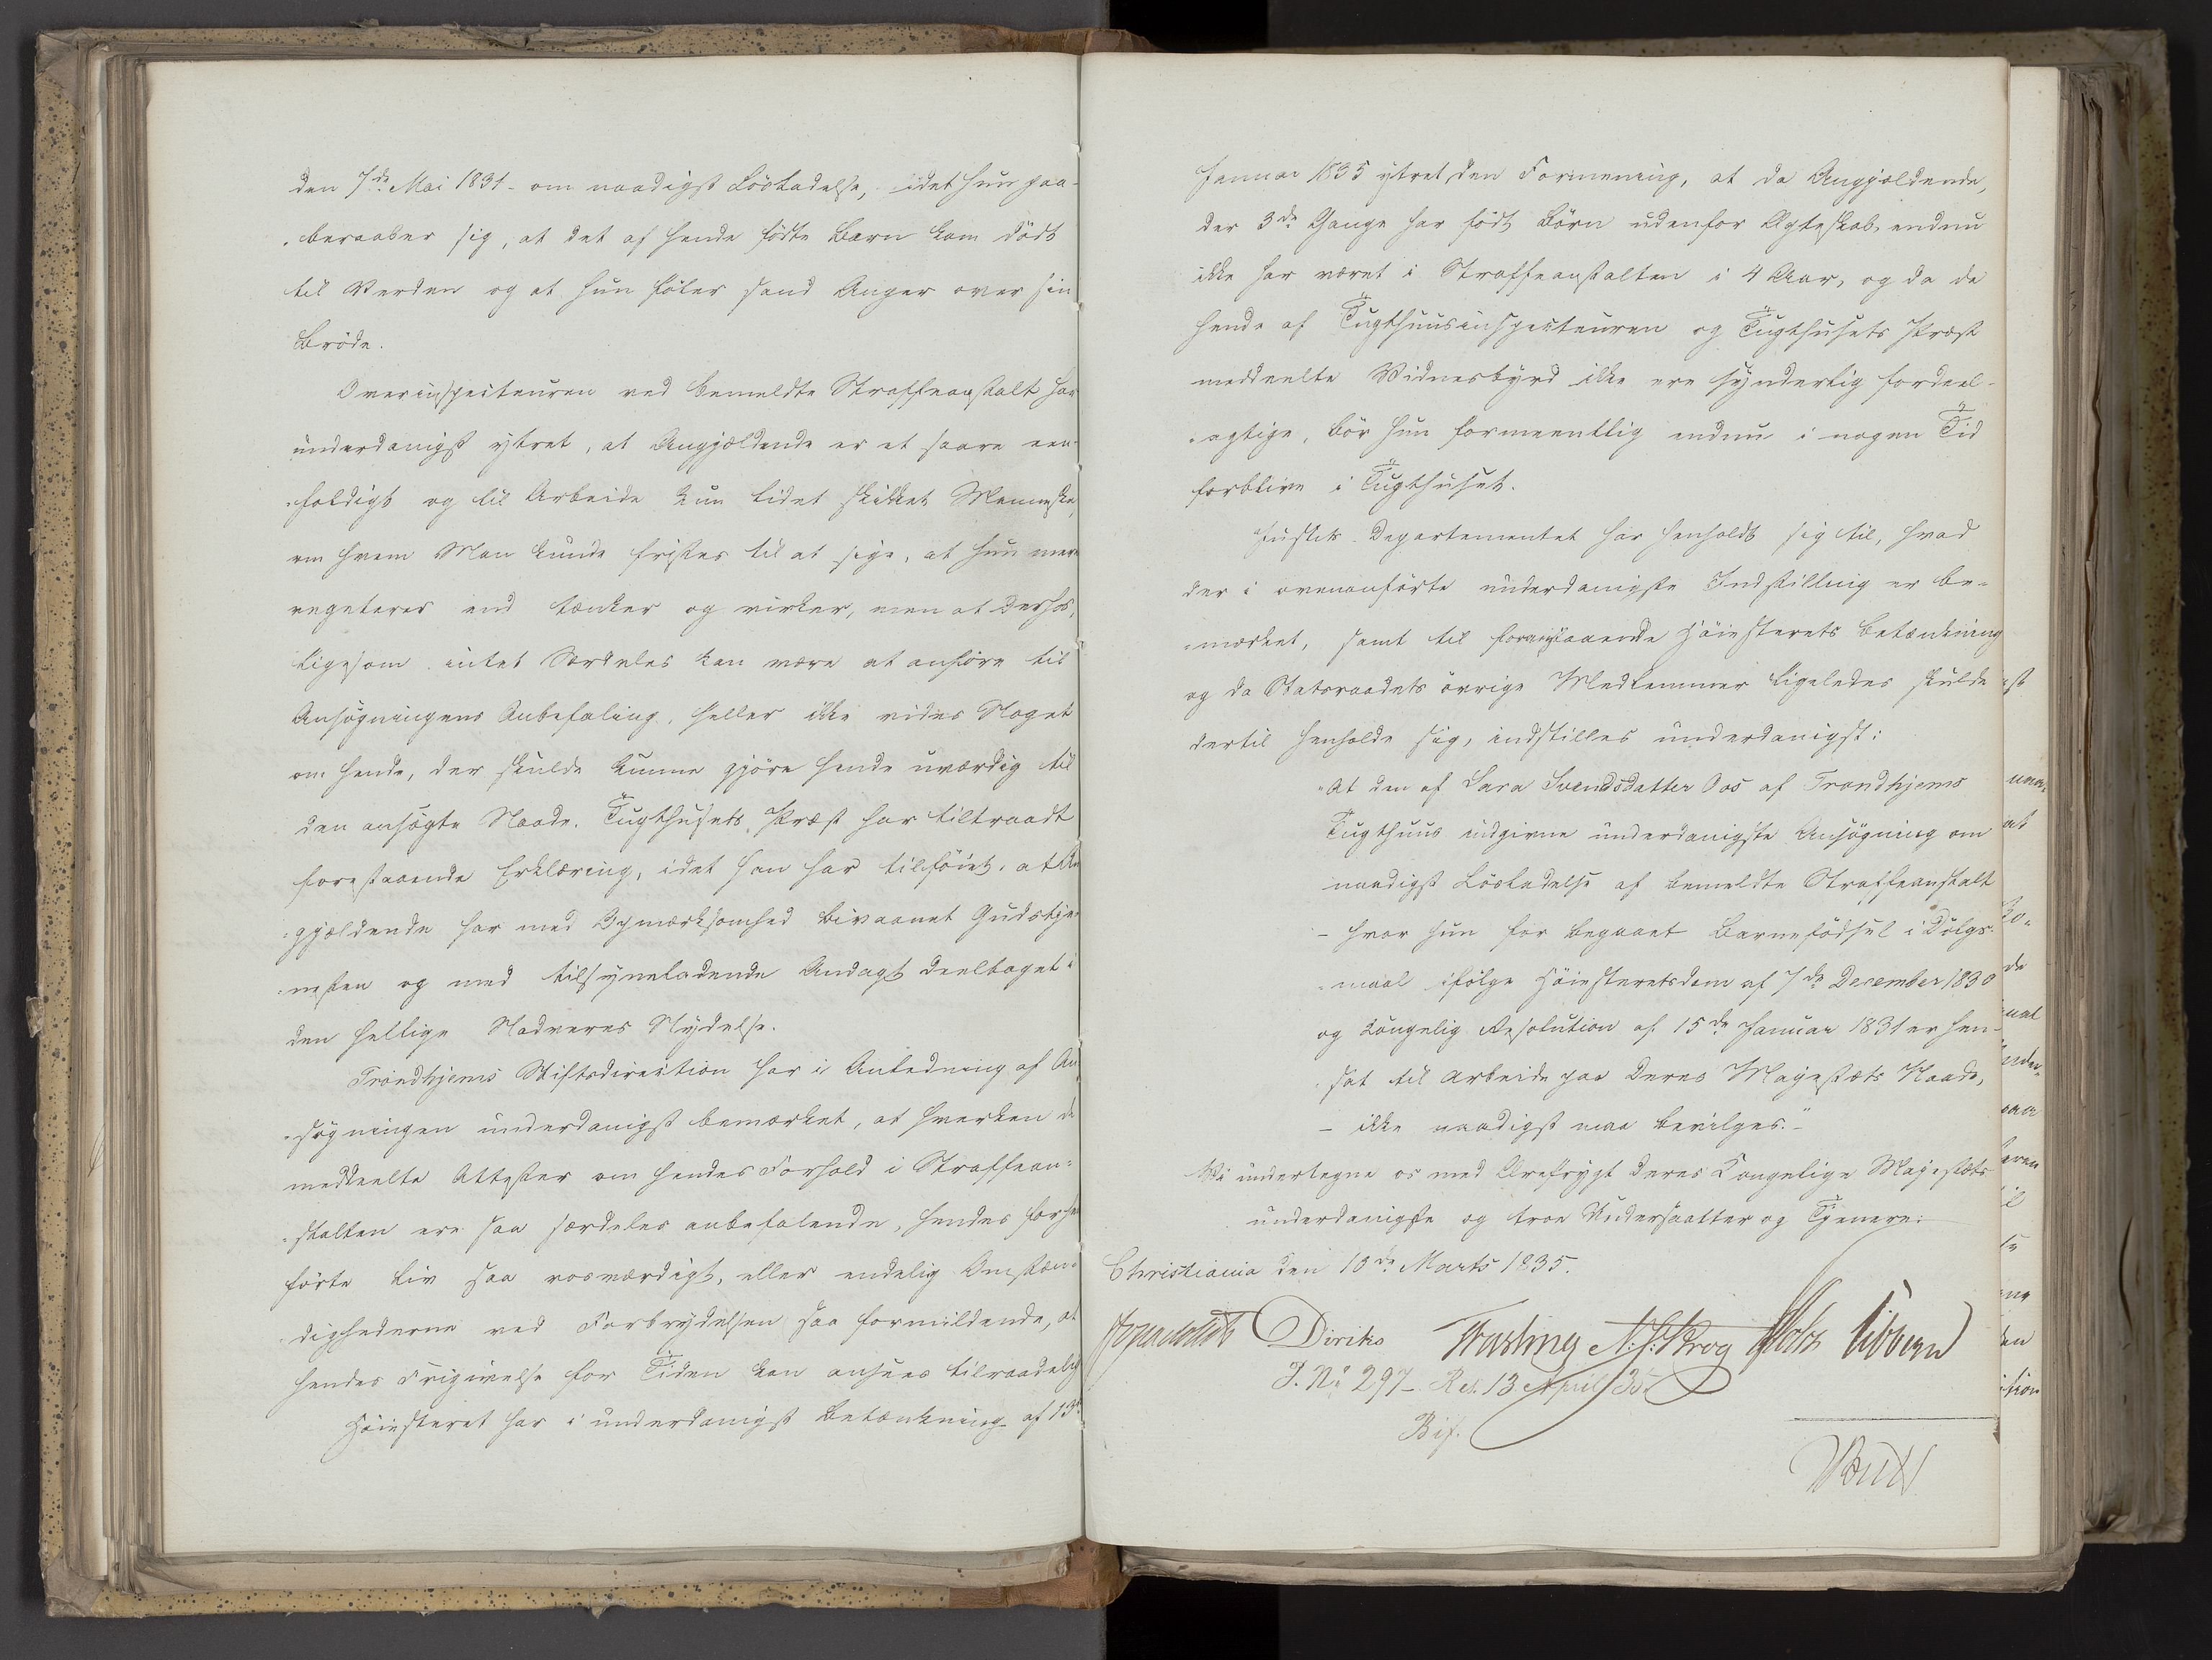 den 7de Mai 1831 - om naadigst Løsladelse, idet hun paa-
-beraaber sig, at det af hende fødte Barn kom dødt
til Verden og at hun føler sand Anger over sin
Brøde.
Overinspecteuren ved bemeldte Straffeanstalt har
underdanigst ytret, at Angjældende er et saare een-
-foldigt og til Arbeide kun lidet skikket Menneske,
om hvem Man kunde fristes til at sige, at hun mere
vegeterer end tænker og virker, men at Derhos,
ligesom intet Særdeles kan være at anføre til
Ansøgningens Anbefaling, heller ikke vides Noget
om hende, der skulde kunne gjøre hende uværdig til
den ansøgte Naade. Tugthusets Præst har tiltraadt
forestaaende Erklæring, idet han har tilføiet, at An
-gjældende har med Opmærksomhed bivaanet Gudstje-
-nesten og med tilsyneladende Andagt deeltaget i
den hellige Nadveres Nydelse.
Trondhjems Stiftsdirection har i Anledning af An
-søgningen underdanigst bemærket, at hverken de
meddeelte Attester om hendes Forhold i Straffean-
-stalten ere saa særdeles anbefalende, hendes forhen
førte Liv saa rosværdigt, eller endelig Omstæn-
-dighederne ved Forbrydelsen saa formildende, at
hendes Frigivelse for Tiden kan ansees tilraadelig
Høiesteret har i underdanigst Betænkning af 13de
Januar 1835 ytret den Formening, at da Angjældende,
der 3de Gange har født Børn udenfor Ægteskab, endnu
ikke har været i Straffeanstalten i 4 Aar, og da de
hende af Tugthuusinspecteuren og Tugthusets Præst
meddeelte Vidnesbyrd ikke ere synderlig fordeel-
-agtige, bør hun formeentlig endnu i nogen Tid
forblive i Tugthuset.
Justits-Departementet har henholdt sig til, hvad
der i ovenanførte underdanigste Indstilling er be-
-mærket, samt til foranstaaende Høiesterets Betænkning
og da Statsraadets øvrige Medlemmer ligeledes skulde
dertil henholde sig, indstilles underdanigst:
"At den af Sara Svendsdatter Oos af Trondhjems
Tugthuus indgivne underdanigste Ansøgning om
naadigst Løsladelse af bemeldte Straffeanstalt
- hvor hun for begaaet Barnefødsel i Dølgs-
-maal ifølge Høiesteretsdom af 7de December 1830
og Kongelig Resolution af 15de Januar 1831 er hen-
-sat til Arbeide paa Deres Majestæts Naade,
- ikke naadigst maa bevilges."
Vi undertegne os med Ærefrygt Deres Kongelige Majestæts
underdanigste og troe Undersaatter og Tjenere:
Christiania den 10de Marts 1835.
Diriks Fasting N. J. Krog Holst Sibbern
J. No 297 - Res. 13 April 35.
Bif.